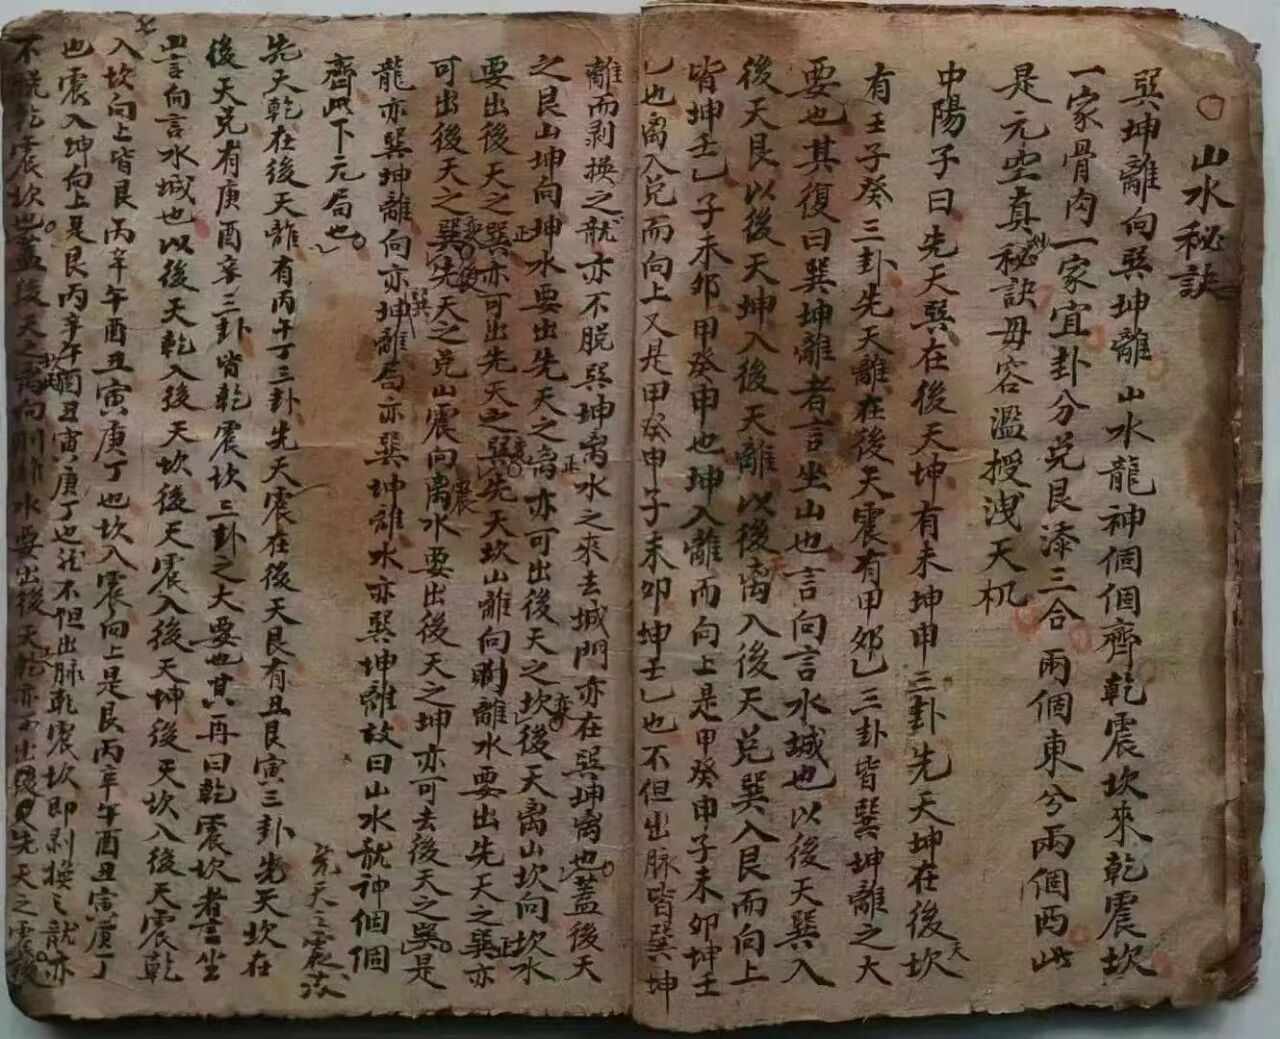 山水秘訣
巽坤離向巽坤離山水龍神個個齊乾震坎來乾震坎
一家骨肉一家宜卦分兌艮添三合兩個東兮兩個西此
是元空真秘訣毋容濫授洩天机
中陽子曰先天巽在後天坤有未坤申三卦先天坤在後坎
天
有壬子癸三卦先天離在後天震有甲卯乙三卦皆巽坤離之大
要也其復曰巽坤離者言坐山也言向言水城也以後天巽入
後天艮以後天坤入後天離以後離入後天兌巽入艮而向上
皆坤壬乙子未卯甲癸申也坤入離而向上是甲癸申子未卯坤壬
乙也离入兌而向上又是甲癸申子未卯坤壬乙也不但出脉皆巽坤
離而剥換之龍亦不脱巽坤离水之來去城門亦在巽坤离也蓋後天
之艮山坤向坤水要出先天之离亦可出後天之坎後天离山坎向坎水
要出後天之巽亦可出先天之巽先天坎山離向離水要出先天之巽亦
可出後天之巽先天之兌山震向离水要出後天之坤亦可去後天之巽是
龍亦巽坤離向亦坤離局亦巽坤離水亦巽坤離故曰山水龍神個個
齊此下元局也
先天乾在後天離有丙午丁三卦先天震在後天艮有丑艮寅三卦先天坎在
後天兌有庚酉辛三卦皆乾震坎三卦之大要也其再曰乾震坎者言坐
山言向言水城也以後天乾入後天坎後天震入後天坤後天坎入後天震乾
入坎向上皆艮丙辛午酉丑寅庚丁也坎入震向上是艮丙辛午酉丑寅庚丁
也震入坤向上是艮丙辛午酉丑寅庚丁也龍不但出脉乾震坎即剥換之龍亦
不脱乾震坎也蓋後天之离向水要出後天